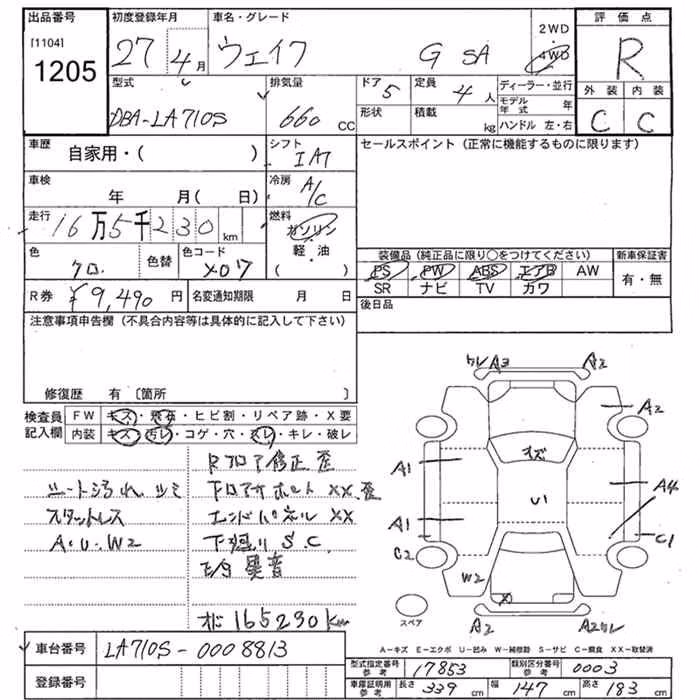 出品番号 初度登録年月 車名・グレード 2WD 評価点
[1104] 27 4月 ウェイク G SA 4WD R
1205
型式 排気量 ドア 5 定員 4人 ディーラー・並行 外装 内装
DBA-LA710S 660 CC 形状 積載 kg モデル年式 年 C C
ハンドル 左・右
車歴 自家用・( ) シフト IAT セールスポイント(正常に機能するものに限ります)
車検 年 月( 日) 冷房 A/C
走行 16万5千230km 燃料 ガソリン
軽・油
( )
色 クロ 色替 色コード X07
装備品(純正品に限り○をつけてください) 新車保証書
PS PW ABS エアB AW 有・無
SR ナビ TV カワ
R券 ¥9,490円 名変通知期限 月 日 後日品
注意事項申告欄(不具合内容等は具体的に記入して下さい)
修復歴 有〔箇所 〕
検査員 FW キズ・飛石・ヒビ割・リペア跡・X要
記入欄 内装 キズ・汚レ・コゲ・穴・スレ・キレ・破レ
Rフロア修正歪
シート汚れ シミ
スタットレス エンドパネル XX
A・U・W2 下廻り S.C.
異音
165230Km
A3 A2
A2
A1 キズ
U1 A4
A1
C2 C1
W2 X
スペア A2
A-キズ E-エクボ U-凹み W-補修跡 S-サビ C-腐食 XX-取替済
車台番号 LA710S-0008813
登録番号
型式指定番号 参考 17853 類別区分番号 参考 0003
車庫証明用 参考 長さ 339cm 幅 147cm 高さ 183cm